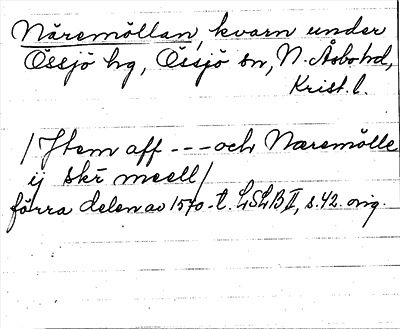 Näremöllan, kvarn under
Össjö hg, Össjö sn, N. Åsbo hd,
Krist. l.
/Jtem aff --- och Næremölle
ij skr meell/
förra delen av 1570-t. LSLB II, s. 42. orig.